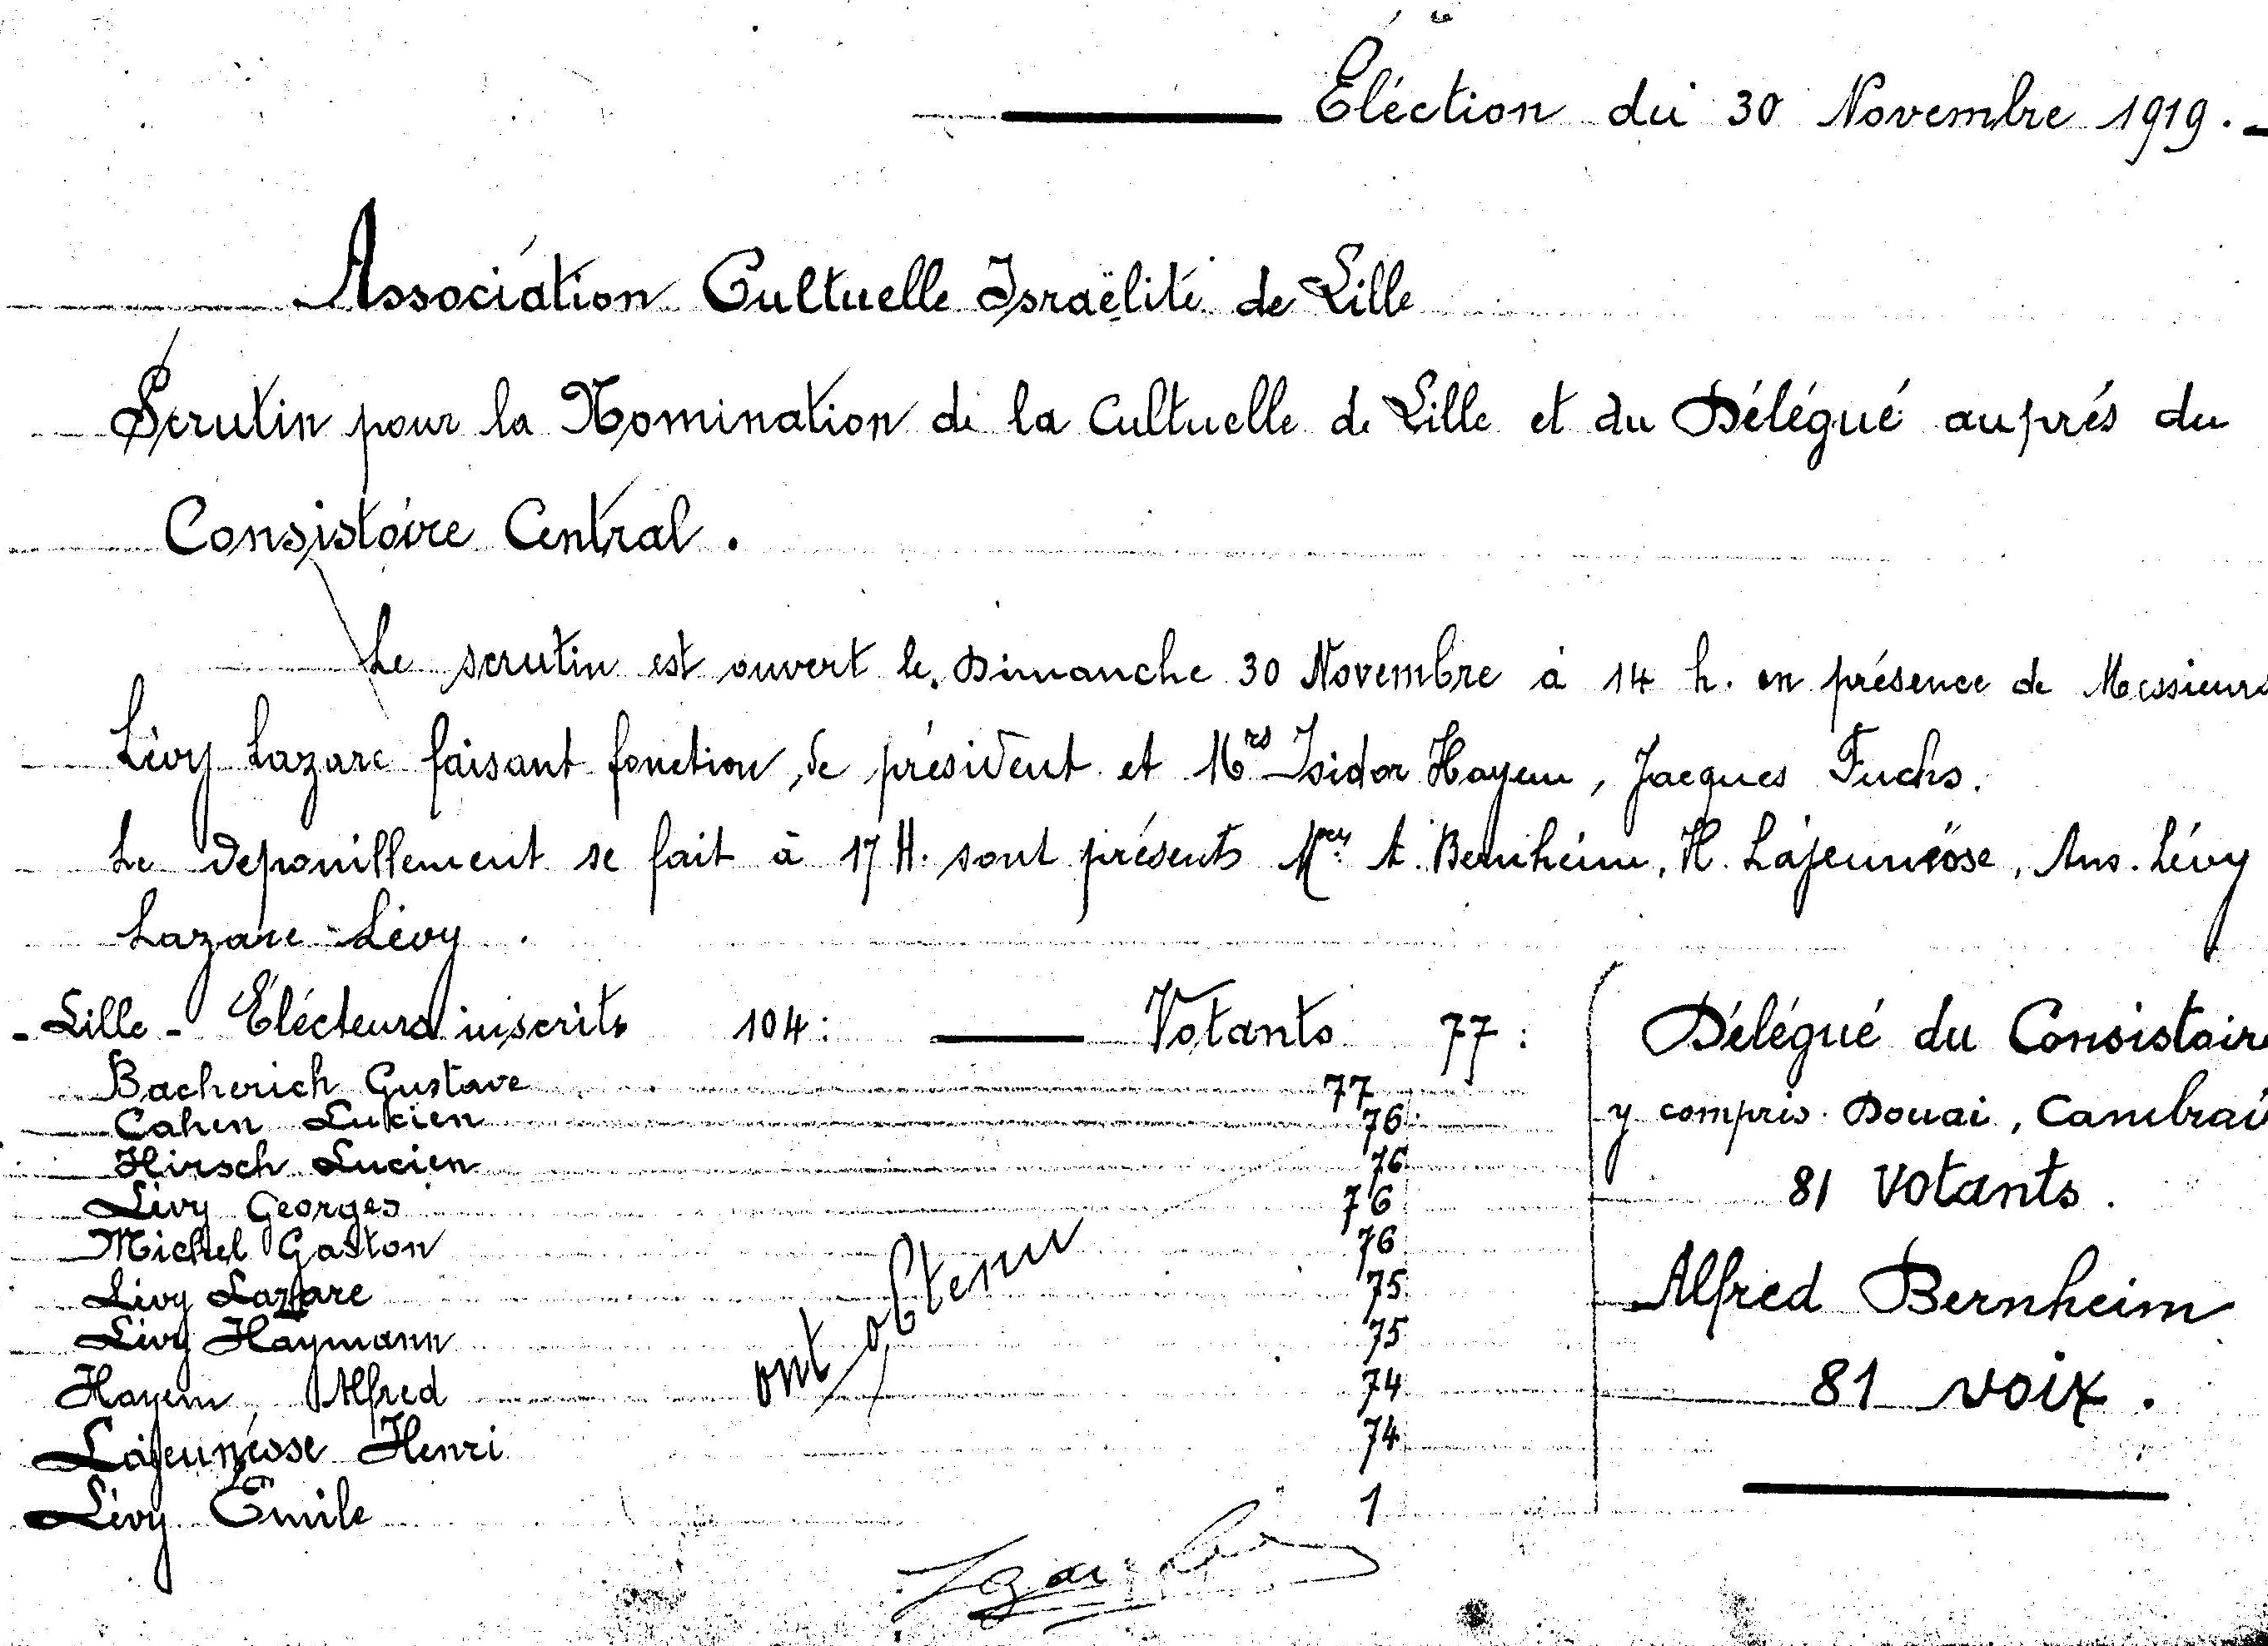 Eléction du 30 Novembre 1919.
Association Cultuelle Israëlite de Lille
Scrutin pour la Nomination de la Cultuelle de Lille et du Délégué auprés du
Consistoire Central.
Le scrutin est ouvert le Dimanche 30 Novembre à 14 h. en présence de Messieurs
Lévy Lazare faisant fonction de président et Mrs Isidor Hayem, Jacques Fuchs.
Le depouillement se fait à 17 H. sont présents Mrs A. Bernheim, H. Lajeunèsse, Ans. Lévy
Lazare-Lévy.
- Lille - Elécteurs inscrits 104: Votants 77:
Bacherich Gustave 77
Cahen Lucien 76
Hirsch Lucien 76
Lévy Georges 76
Michel Gaston 76
Lévy Lazare 75
Lévy Haymann 75
Hayem, Alfred 74
Lajeunésse Henri 74
Lévy Emile 1
ont obtenu
Délégué du Consistoire
y compris Douai, Cambrai
81 Votants.
Alfred Bernheim
81 voix.